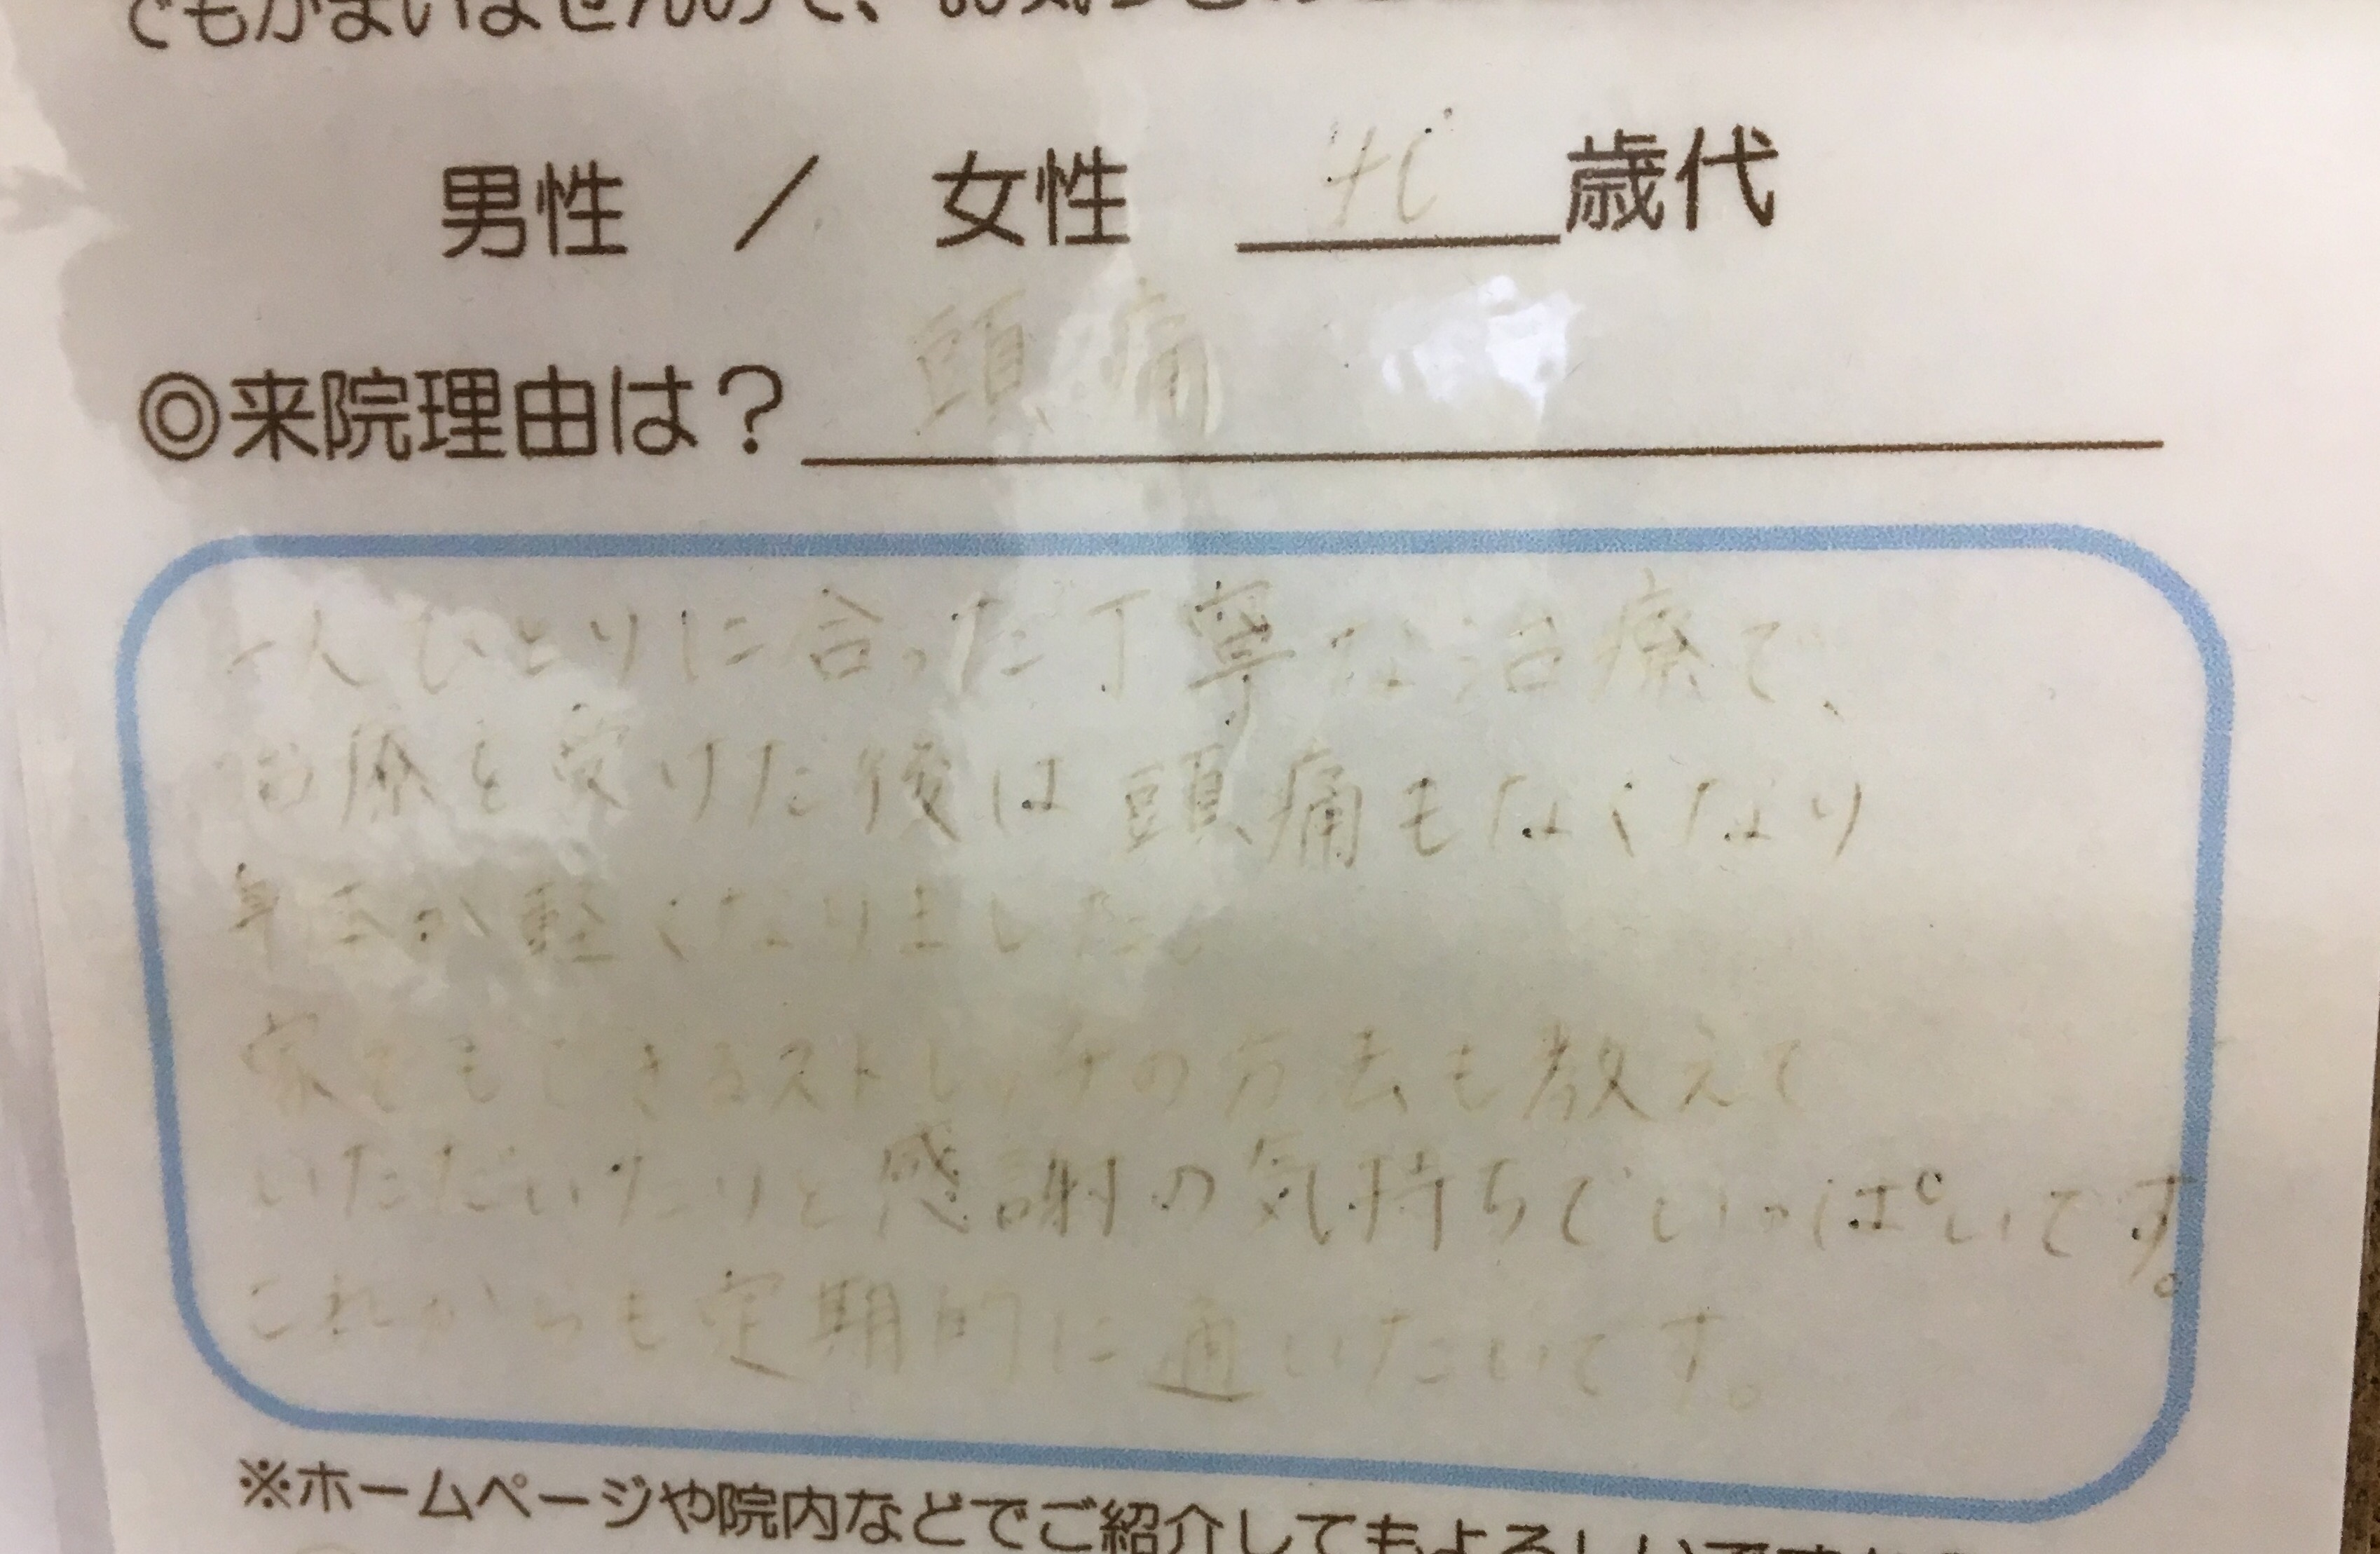 でもかまいませんので、お気
男性 / 女性 40 歳代
◎来院理由は？ 頭痛
一人ひとりに合った丁寧な治療で、
治療を受けた後は頭痛もなくなり
身体が軽くなりました。
家でもできるストレッチの方法も教えて
いただいたりと感謝の気持ちでいっぱいです。
これからも定期的に通いたいです。
※ホームページや院内などでご紹介してもよろしいですか